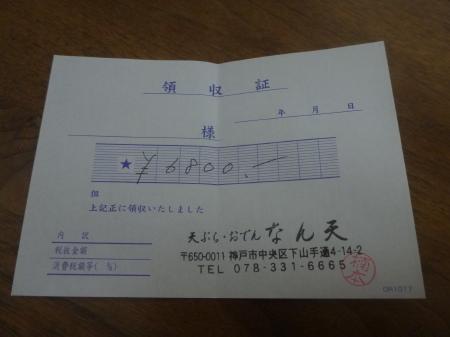 領収証
年 月 日
様
★ ¥6800.-
但
上記正に領収いたしました
内訳
税抜金額
消費税額等( %)
天ぷら・おでん なん天
〒650-0011 神戸市中央区下山手通4-14-2
TEL 078-331-6665